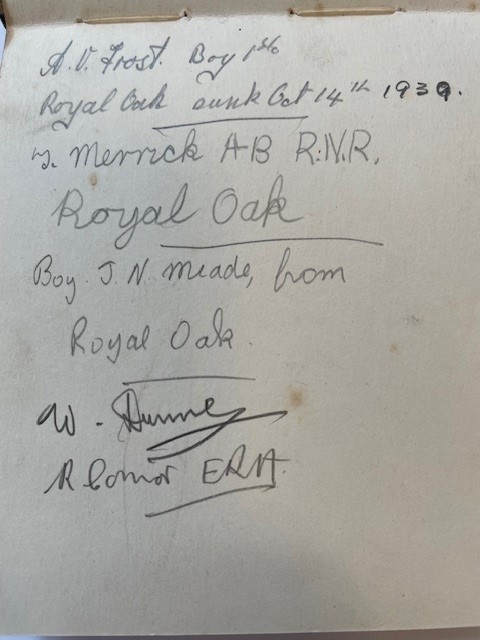 A.V. Frost. Boy 1st/c
Royal Oak sunk Oct 14th 1939.
Merrick AB R.N.R.
Royal Oak
Boy. J. N. Meade, from
Royal Oak.
W.
R Connor ERA.